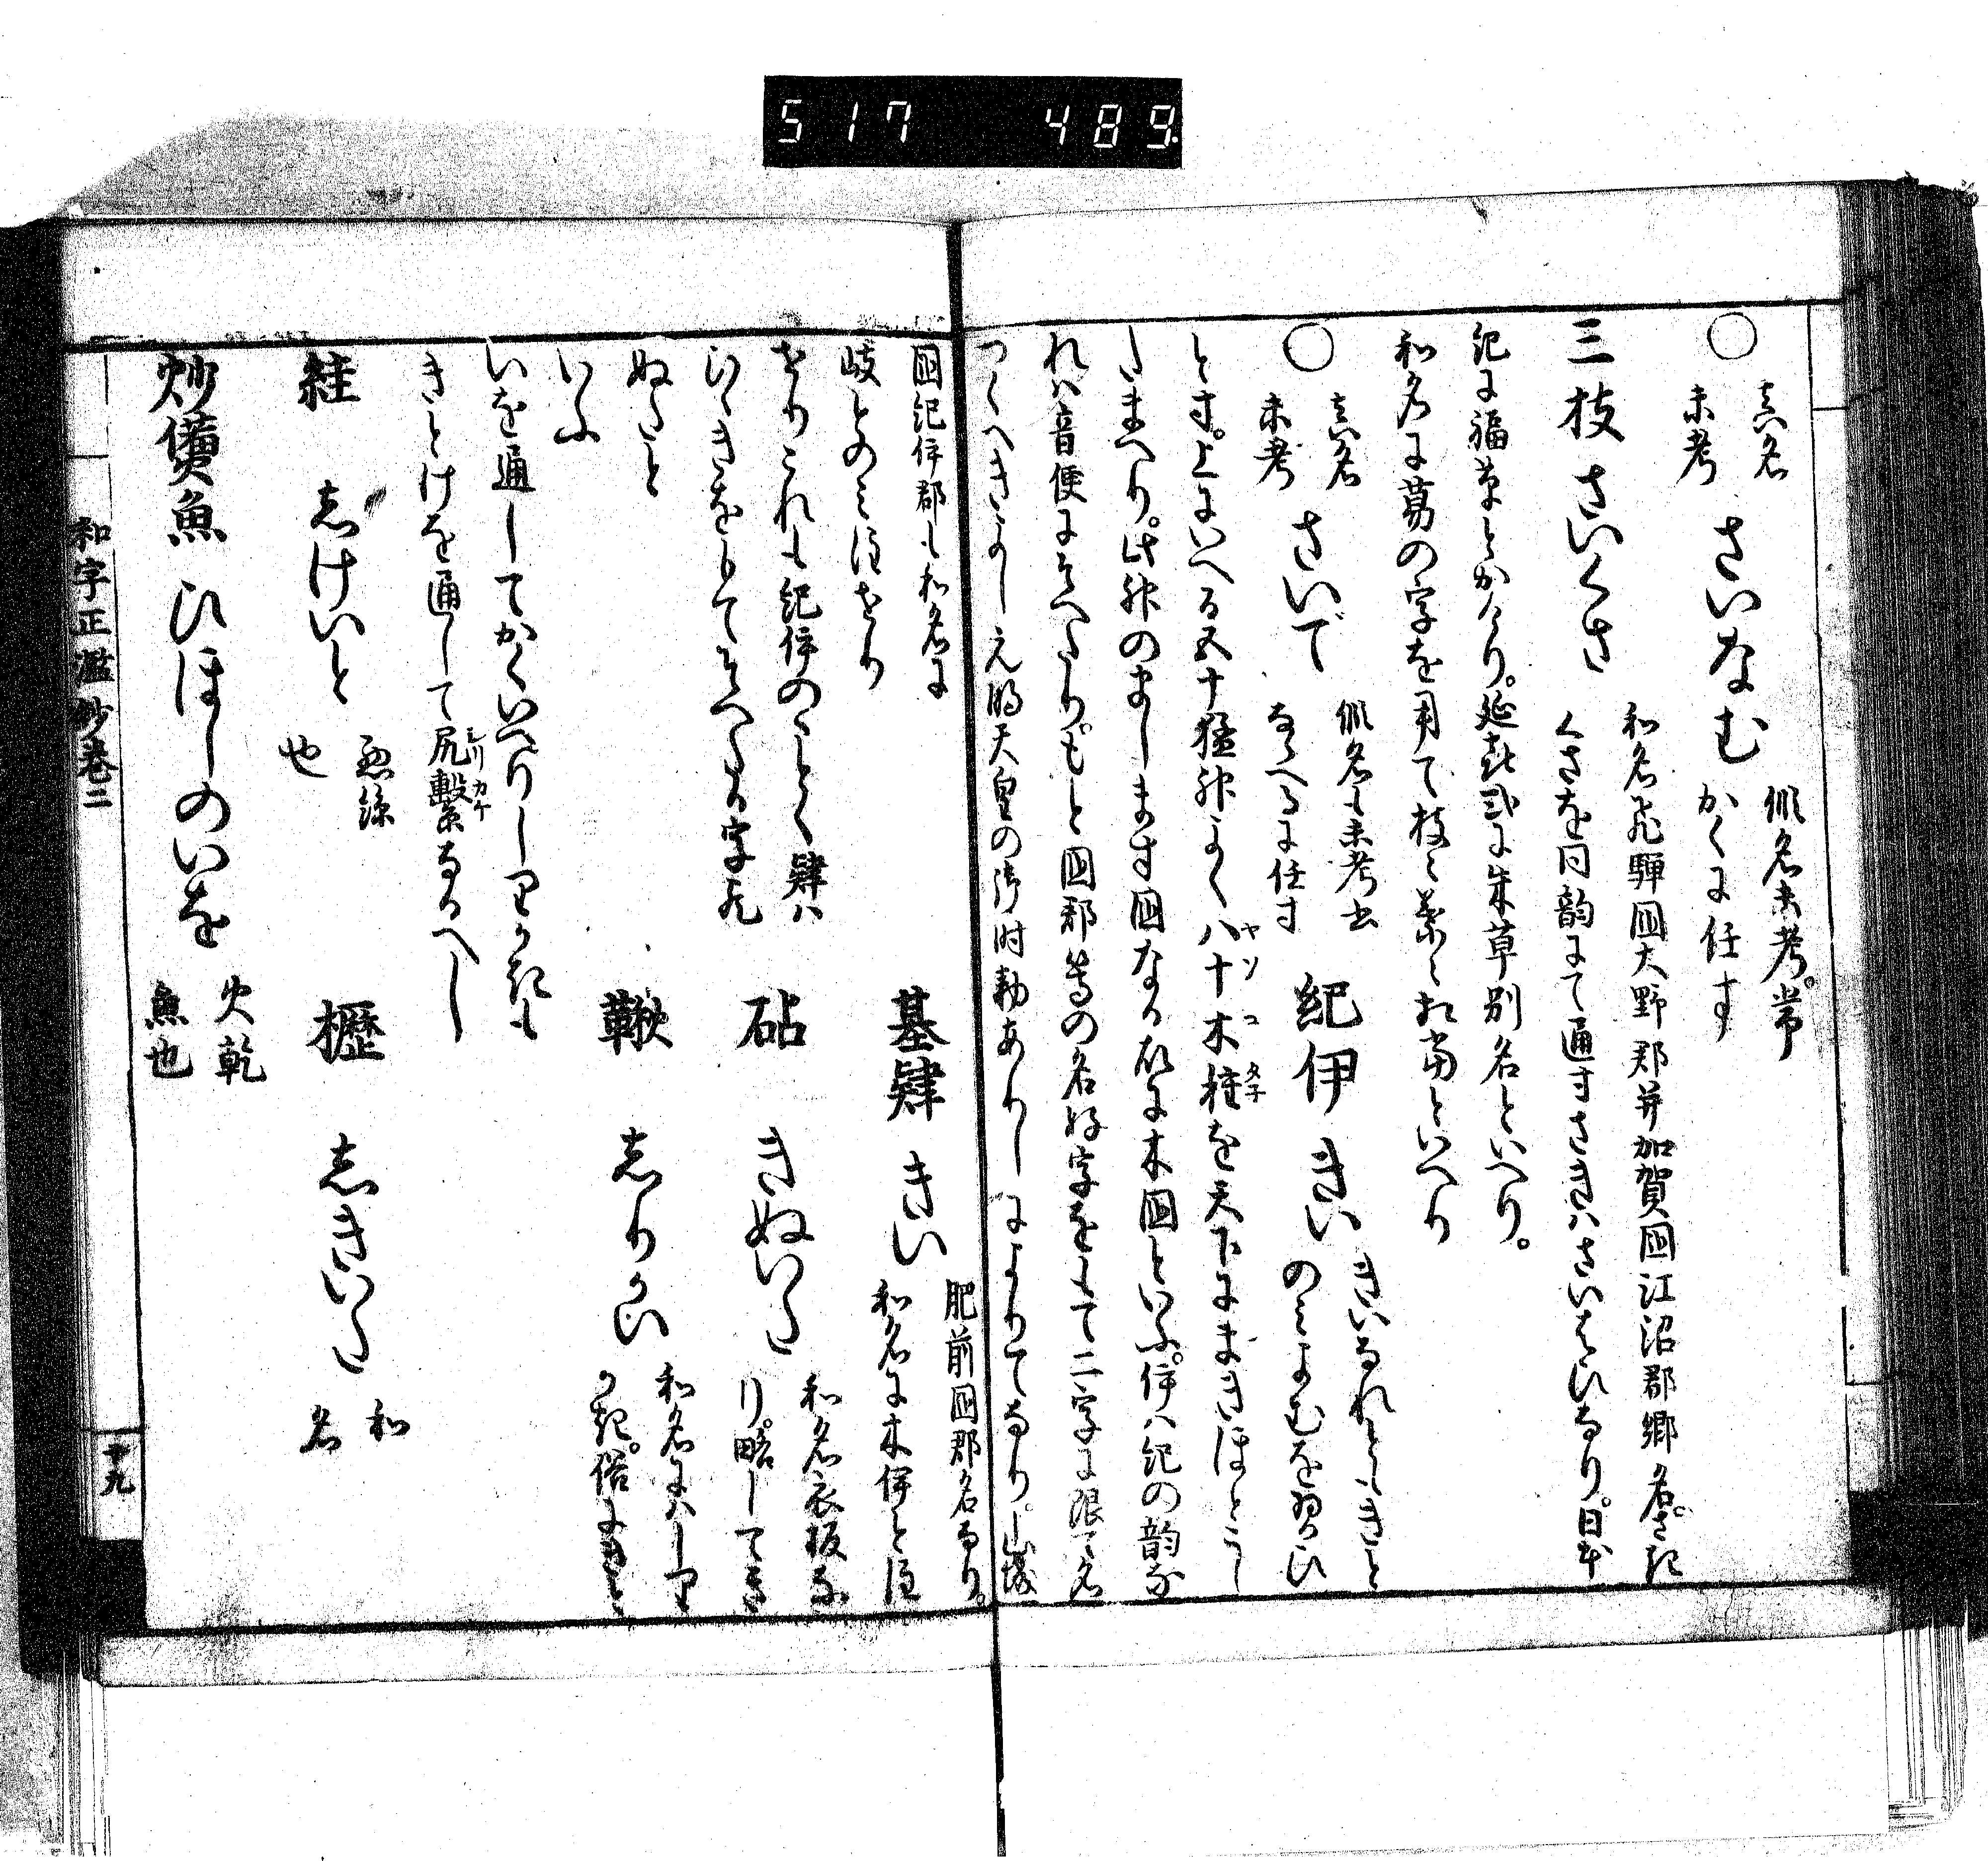 517 489
○
真名
未考
さいなむ
仮名未考。常
かくに任す
三枝 さいくさ
和名飛騨国大野郡并加賀国江沼郡郷名。さき
くさを同韻にて通すさきハさいはひなり。日本
紀に福草とかけり。延喜式に朱草別名といへり。
和名に葛の字を用て枝々葉々相当といへり
○
真名
未考
さいで
仮名も未考出
なへるに任す
紀伊 きい
きいなれとゝきと
のミよむを習ひ
とす。上にいへる五十猛神よく八十木種を天下にまきほとこし
たまへり。此神のまします国なる故に木国といふ。伊ハ紀の韻な
れハ音便にそへたり。もと国郡等の名好字をもて二字に限て名
つくへきよし元明天皇の御時勅ありしによりてなり。山城
国紀伊郡も和名に
岐とのミ注せり
基肄 きい
肥前国郡名なり。
和名に木伊と注
せりこれも紀伊のことく肄ハ
ひゝきをもてそへたる字尤
砧 きぬいた
和名衣板な
り。略してき
ぬたと
いふ
鞦 しりかい
和名にハしり
かき。俗にきを
いを通してかくいへりしりかきも
きとけを通して尻繫なるへし
シリカケ
絓 しけいと
悪絲
也
櫪 しきいた
和
名
炒儥魚 ひほしのいを
火乾
魚也
和字正濫抄巻二
十九